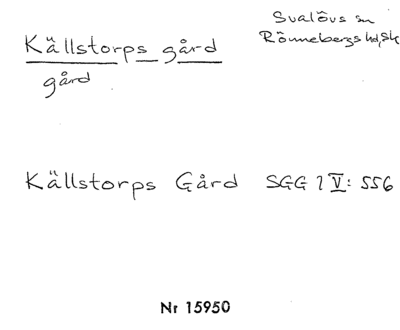 Källstorps gård
gård
Svalövs sn
Rönnebergs hd, Sk
Källstorps Gård SGG 1 V: 556
Nr 15950